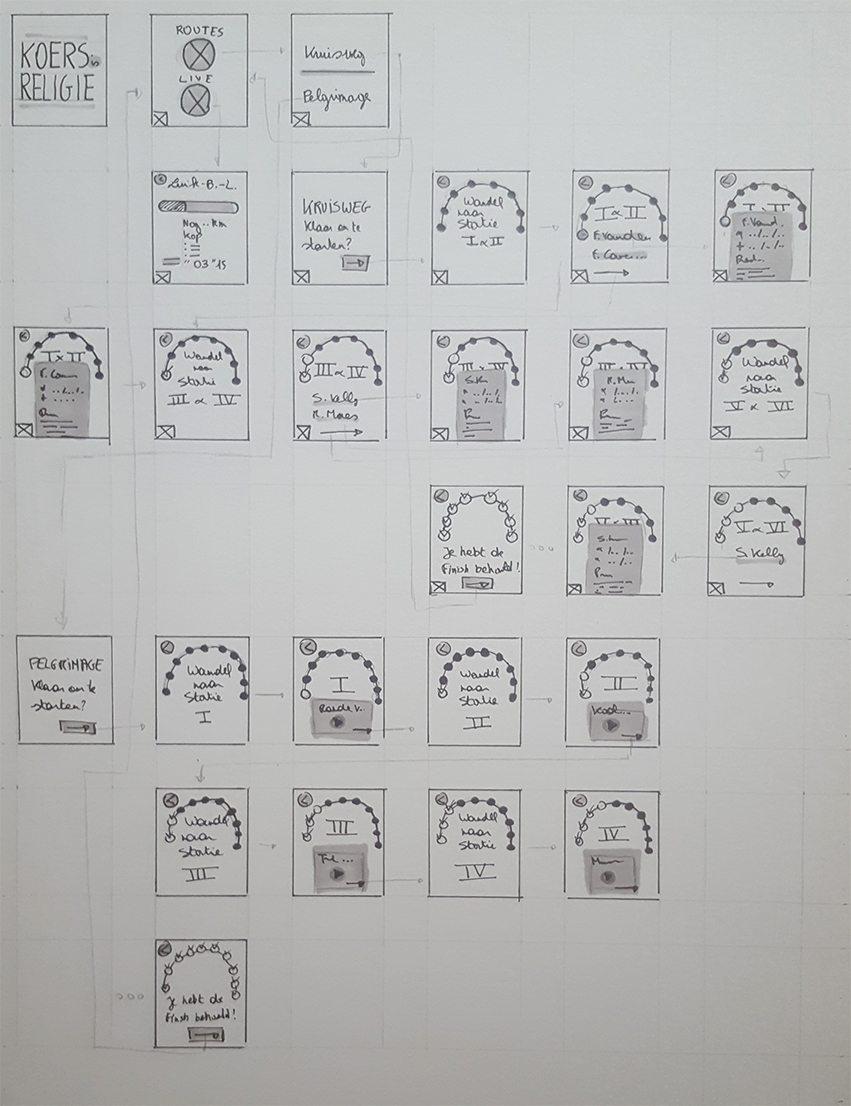 KOERS is
RELIGIE
ROUTES
LIVE
Kruisweg
Pelgrimage
Luik-B.-L.
Nog .. km
Kop
03"15
KRUISWEG
Klaar om te
starten?
Wandel
naar
Statie
I & II
I & II
F. Vanden
F. Cave...
I & II
F. Vand.
* ../../..
+ ../../..
I & II
* ../../..
+ ....
Wandel
naar
Statie
III & IV
III & IV
S. Kelly
R. Maes
III & IV
* ../../..
III & IV
Wandel
naar
Statie
V & VI
Je hebt de
finish behaald!
...
V & VI
S. Kelly
PELGRIMAGE
Klaar om te
starten?
Wandel
naar
Statie
I
I
Ronde V..
Wandel
naar
Statie
II
II
Wandel
naar
Statie
III
III
Wandel
naar
Statie
IV
IV
...
Je hebt de
finish behaald!